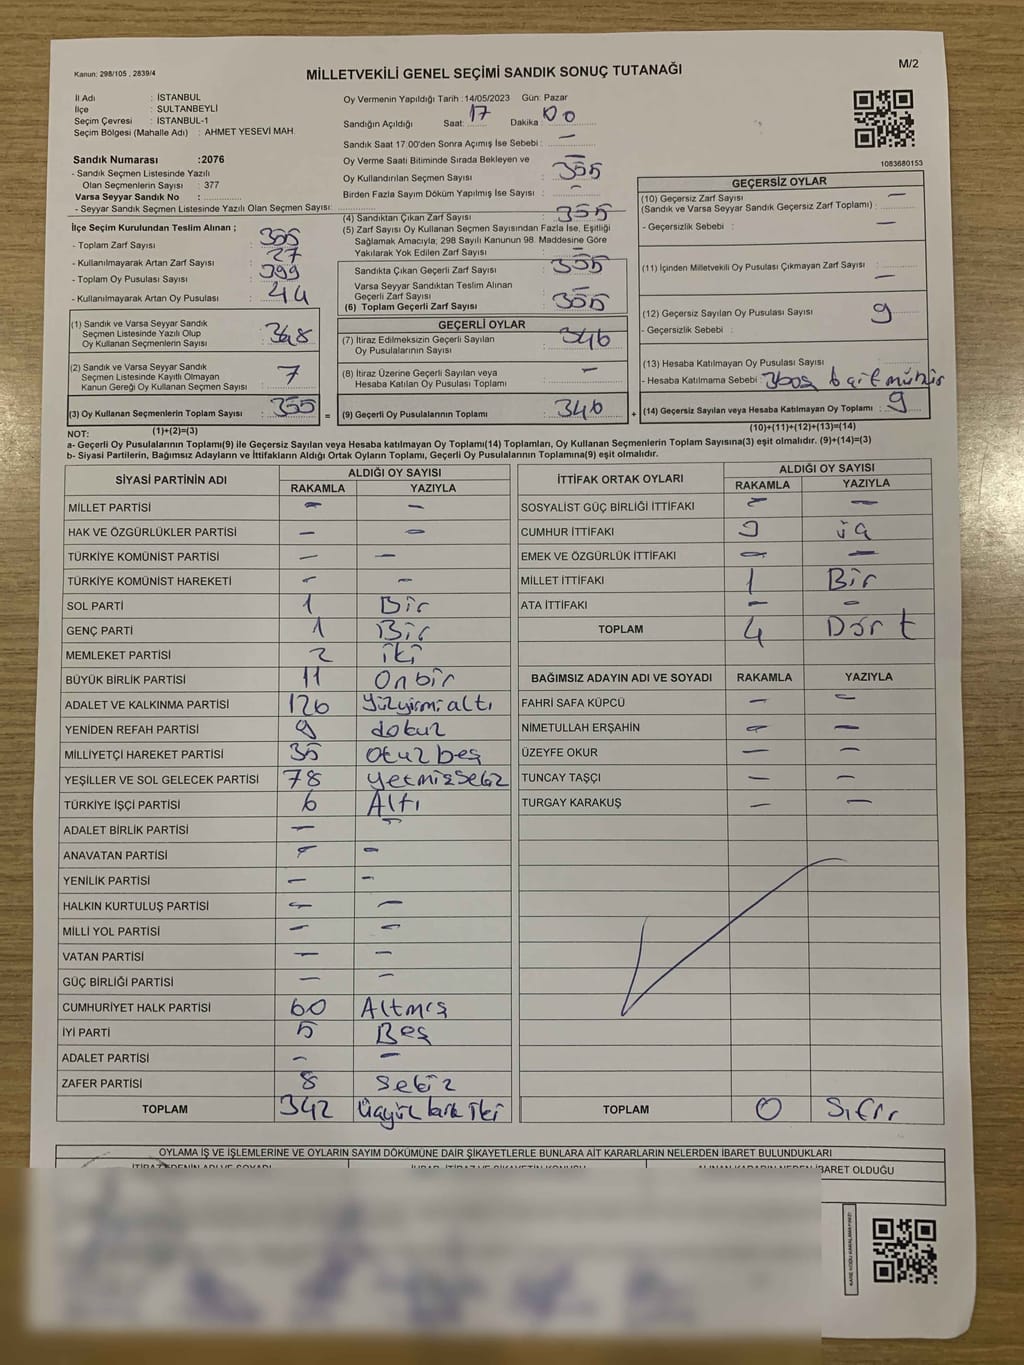 Kanun: 298/105 , 2839/4
MİLLETVEKİLİ GENEL SEÇİMİ SANDIK SONUÇ TUTANAĞI
M/2
İl Adı : İSTANBUL
İlçe : SULTANBEYLİ
Seçim Çevresi : İSTANBUL-1
Seçim Bölgesi (Mahalle Adı) : AHMET YESEVİ MAH.
Sandık Numarası :2076
- Sandık Seçmen Listesinde Yazılı
Olan Seçmenlerin Sayısı : 377
Varsa Seyyar Sandık No :
- Seyyar Sandık Seçmen Listesinde Yazılı Olan Seçmen Sayısı:
Oy Vermenin Yapıldığı Tarih :14/05/2023 Gün: Pazar
Sandığın Açıldığı Saat: 17 Dakika: 00
Sandık Saat 17:00'den Sonra Açımış İse Sebebi : —
Oy Verme Saati Bitiminde Sırada Bekleyen ve
Oy Kullandırılan Seçmen Sayısı : 355
Birden Fazla Sayım Döküm Yapılmış İse Sayısı : -
1083680153
İlçe Seçim Kurulundan Teslim Alınan ;
- Toplam Zarf Sayısı : 355
- Kullanılmayarak Artan Zarf Sayısı : 27
- Toplam Oy Pusulası Sayısı : 399
- Kullanılmayarak Artan Oy Pusulası : 44
(1) Sandık ve Varsa Seyyar Sandık
Seçmen Listesinde Yazılı Olup
Oy Kullanan Seçmenlerin Sayısı : 348
(2) Sandık ve Varsa Seyyar Sandık
Seçmen Listesinde Kayıtlı Olmayan
Kanun Gereği Oy Kullanan Seçmen Sayısı : 7
(3) Oy Kullanan Seçmenlerin Toplam Sayısı : 355 =
(1)+(2)=(3)
(4) Sandıktan Çıkan Zarf Sayısı : 355
(5) Zarf Sayısı Oy Kullanan Seçmen Sayısından Fazla İse, Eşitliği
Sağlamak Amacıyla; 298 Sayılı Kanunun 98. Maddesine Göre
Yakılarak Yok Edilen Zarf Sayısı : —
Sandıkta Çıkan Geçerli Zarf Sayısı : 355
Varsa Seyyar Sandıktan Teslim Alınan
Geçerli Zarf Sayısı :
(6) Toplam Geçerli Zarf Sayısı : 355
GEÇERLİ OYLAR
(7) İtiraz Edilmeksizin Geçerli Sayılan
Oy Pusulalarının Sayısı : 346
(8) İtiraz Üzerine Geçerli Sayılan veya
Hesaba Katılan Oy Pusulası Toplamı : —
(9) Geçerli Oy Pusulalarının Toplamı : 346 +
GEÇERSİZ OYLAR
(10) Geçersiz Zarf Sayısı
(Sandık ve Varsa Seyyar Sandık Geçersiz Zarf Toplamı) : —
- Geçersizlik Sebebi : —
(11) İçinden Milletvekili Oy Pusulası Çıkmayan Zarf Sayısı : —
(12) Geçersiz Sayılan Oy Pusulası Sayısı : 9
- Geçersizlik Sebebi :
(13) Hesaba Katılmayan Oy Pusulası Sayısı :
- Hesaba Katılmama Sebebi : 3boş
(14) Geçersiz Sayılan veya Hesaba Katılmayan Oy Toplamı : 9
(10)+(11)+(12)+(13)=(14)
NOT:
a- Geçerli Oy Pusulalarının Toplamı(9) ile Geçersiz Sayılan veya Hesaba katılmayan Oy Toplamı(14) Toplamları, Oy Kullanan Seçmenlerin Toplam Sayısına(3) eşit olmalıdır. (9)+(14)=(3)
b- Siyasi Partilerin, Bağımsız Adayların ve İttifakların Aldığı Ortak Oyların Toplamı, Geçerli Oy Pusulalarının Toplamına(9) eşit olmalıdır.
SİYASİ PARTİNİN ADI ALDIĞI OY SAYISI
RAKAMLA YAZIYLA
MİLLET PARTİSİ — —
HAK VE ÖZGÜRLÜKLER PARTİSİ — —
TÜRKİYE KOMÜNİST PARTİSİ — —
TÜRKİYE KOMÜNİST HAREKETİ — —
SOL PARTİ 1 Bir
GENÇ PARTİ 1 Bir
MEMLEKET PARTİSİ 2 iki
BÜYÜK BİRLİK PARTİSİ 11 Onbir
ADALET VE KALKINMA PARTİSİ 126 Yüzyirmialtı
YENİDEN REFAH PARTİSİ 9 dokuz
MİLLİYETÇİ HAREKET PARTİSİ 35 Otuzbeş
YEŞİLLER VE SOL GELECEK PARTİSİ 78 yetmişsekiz
TÜRKİYE İŞÇİ PARTİSİ 6 Altı
ADALET BİRLİK PARTİSİ — —
ANAVATAN PARTİSİ — —
YENİLİK PARTİSİ — —
HALKIN KURTULUŞ PARTİSİ — —
MİLLİ YOL PARTİSİ — —
VATAN PARTİSİ — —
GÜÇ BİRLİĞİ PARTİSİ — —
CUMHURİYET HALK PARTİSİ 60 Altmış
İYİ PARTİ 5 Beş
ADALET PARTİSİ — —
ZAFER PARTİSİ 8 Sekiz
TOPLAM 342 Üçyüz kırk iki
İTTİFAK ORTAK OYLARI ALDIĞI OY SAYISI
RAKAMLA YAZIYLA
SOSYALİST GÜÇ BİRLİĞİ İTTİFAKI — —
CUMHUR İTTİFAKI 3 üç
EMEK VE ÖZGÜRLÜK İTTİFAKI — —
MİLLET İTTİFAKI 1 Bir
ATA İTTİFAKI — —
TOPLAM 4 Dört
BAĞIMSIZ ADAYIN ADI VE SOYADI RAKAMLA YAZIYLA
FAHRİ SAFA KÜPCÜ — —
NİMETULLAH ERŞAHİN — —
ÜZEYFE OKUR — —
TUNCAY TAŞÇI — —
TURGAY KARAKUŞ — —
TOPLAM 0 Sıfır
OYLAMA İŞ VE İŞLEMLERİNE VE OYLARIN SAYIM DÖKÜMÜNE DAİR ŞİKAYETLERLE BUNLARA AİT KARARLARIN NELERDEN İBARET BULUNDUKLARI
İBARET OLDUĞU